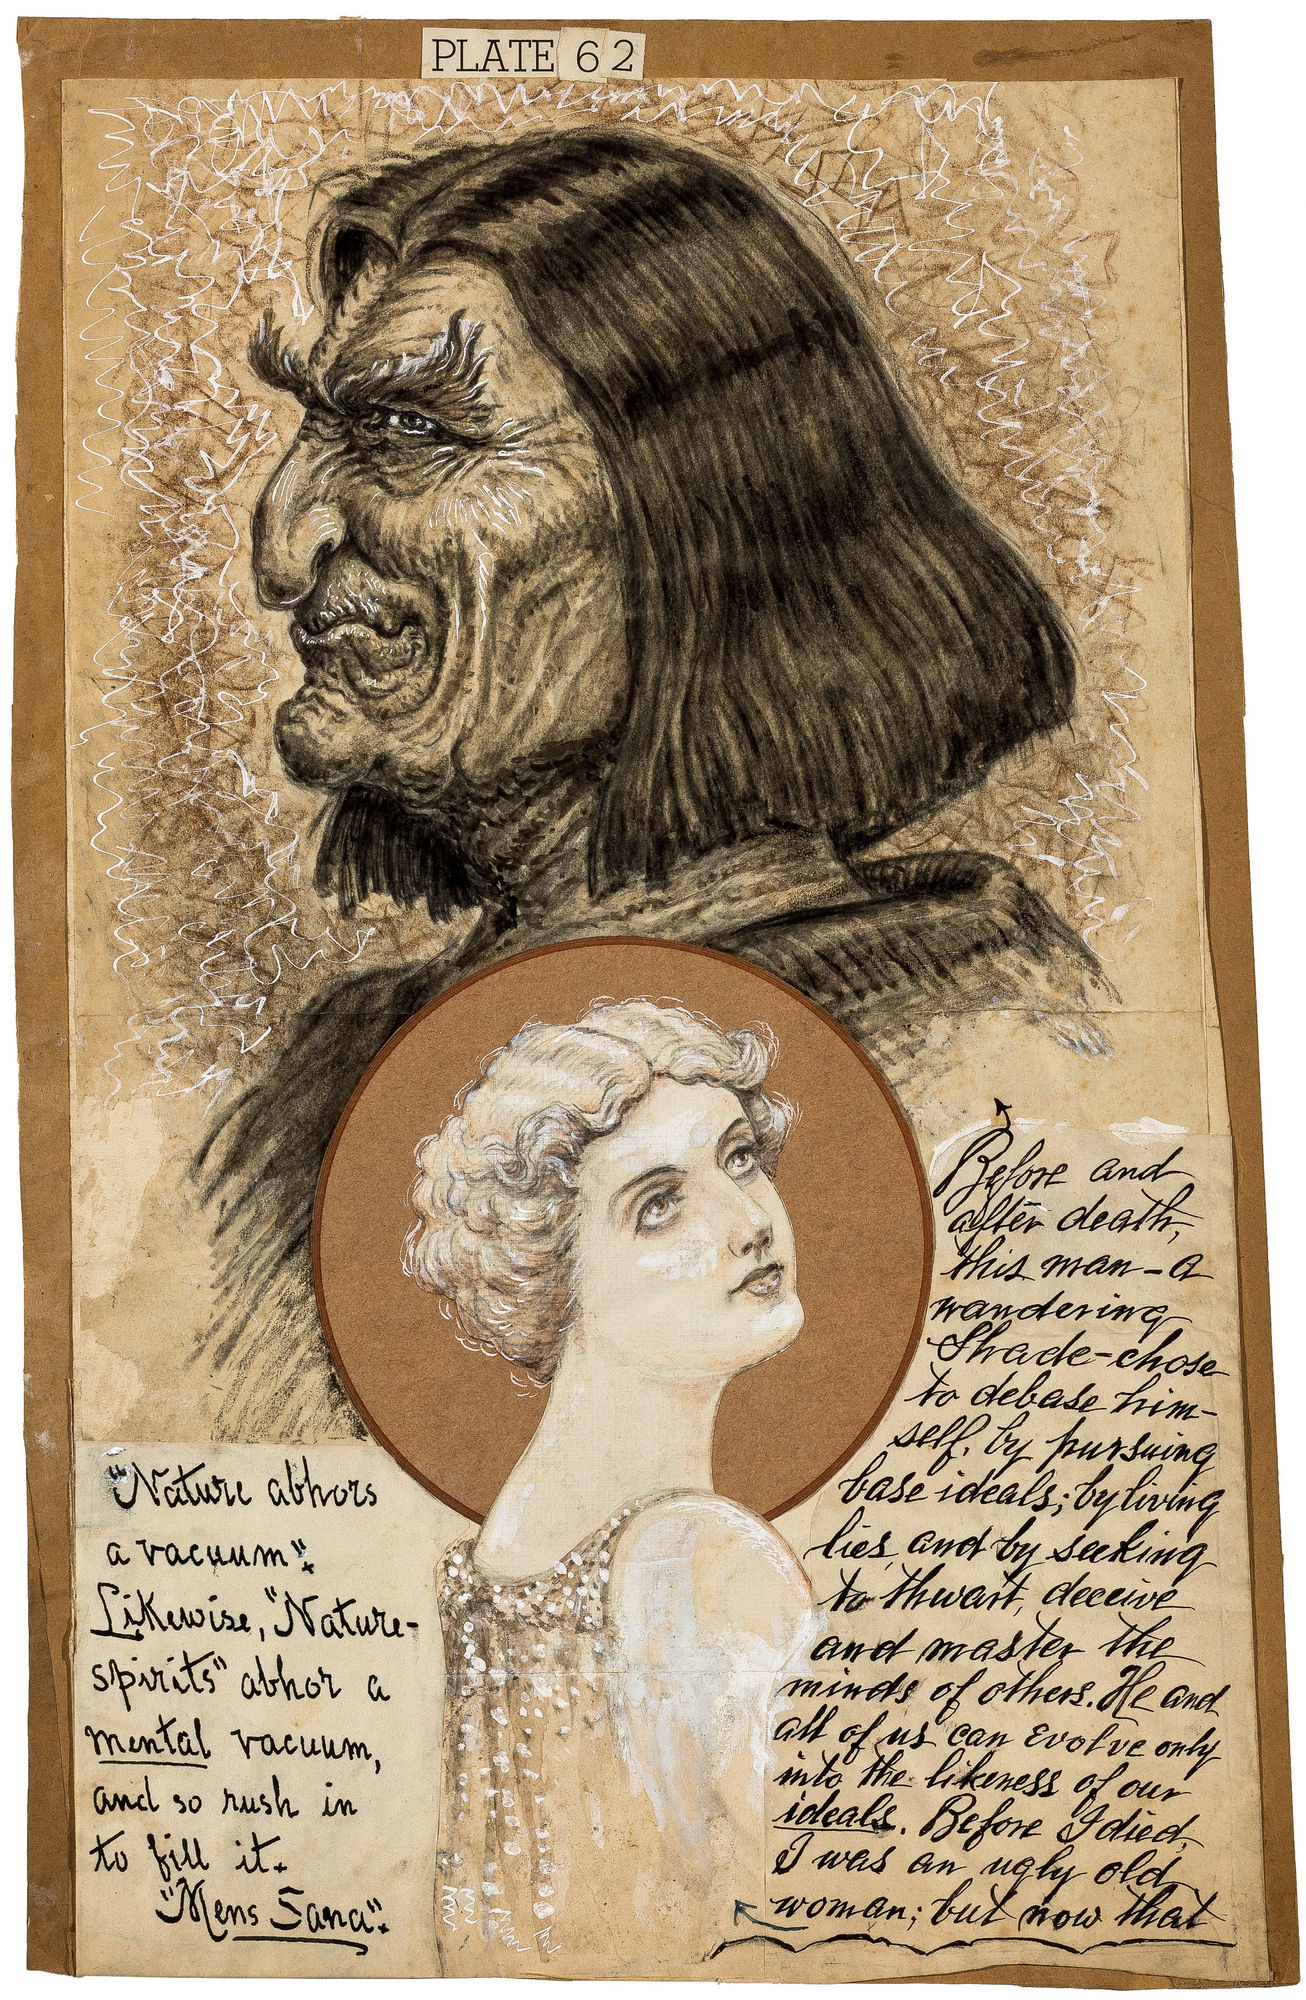 PLATE 62
Before and
after death,
this man - a
wandering
Shade - chose
to debase him-
self, by pursuing
base ideals; by living
lies, and by seeking
to thwart, deceive
and master the
minds of others. He and
all of us can evolve only
into the likeness of our
ideals. Before I died,
I was an ugly old
woman; but now that
"Nature abhors
a vacuum".
Likewise, "Nature-
spirits" abhor a
mental vacuum,
and so rush in
to fill it.
"Mens Sana".